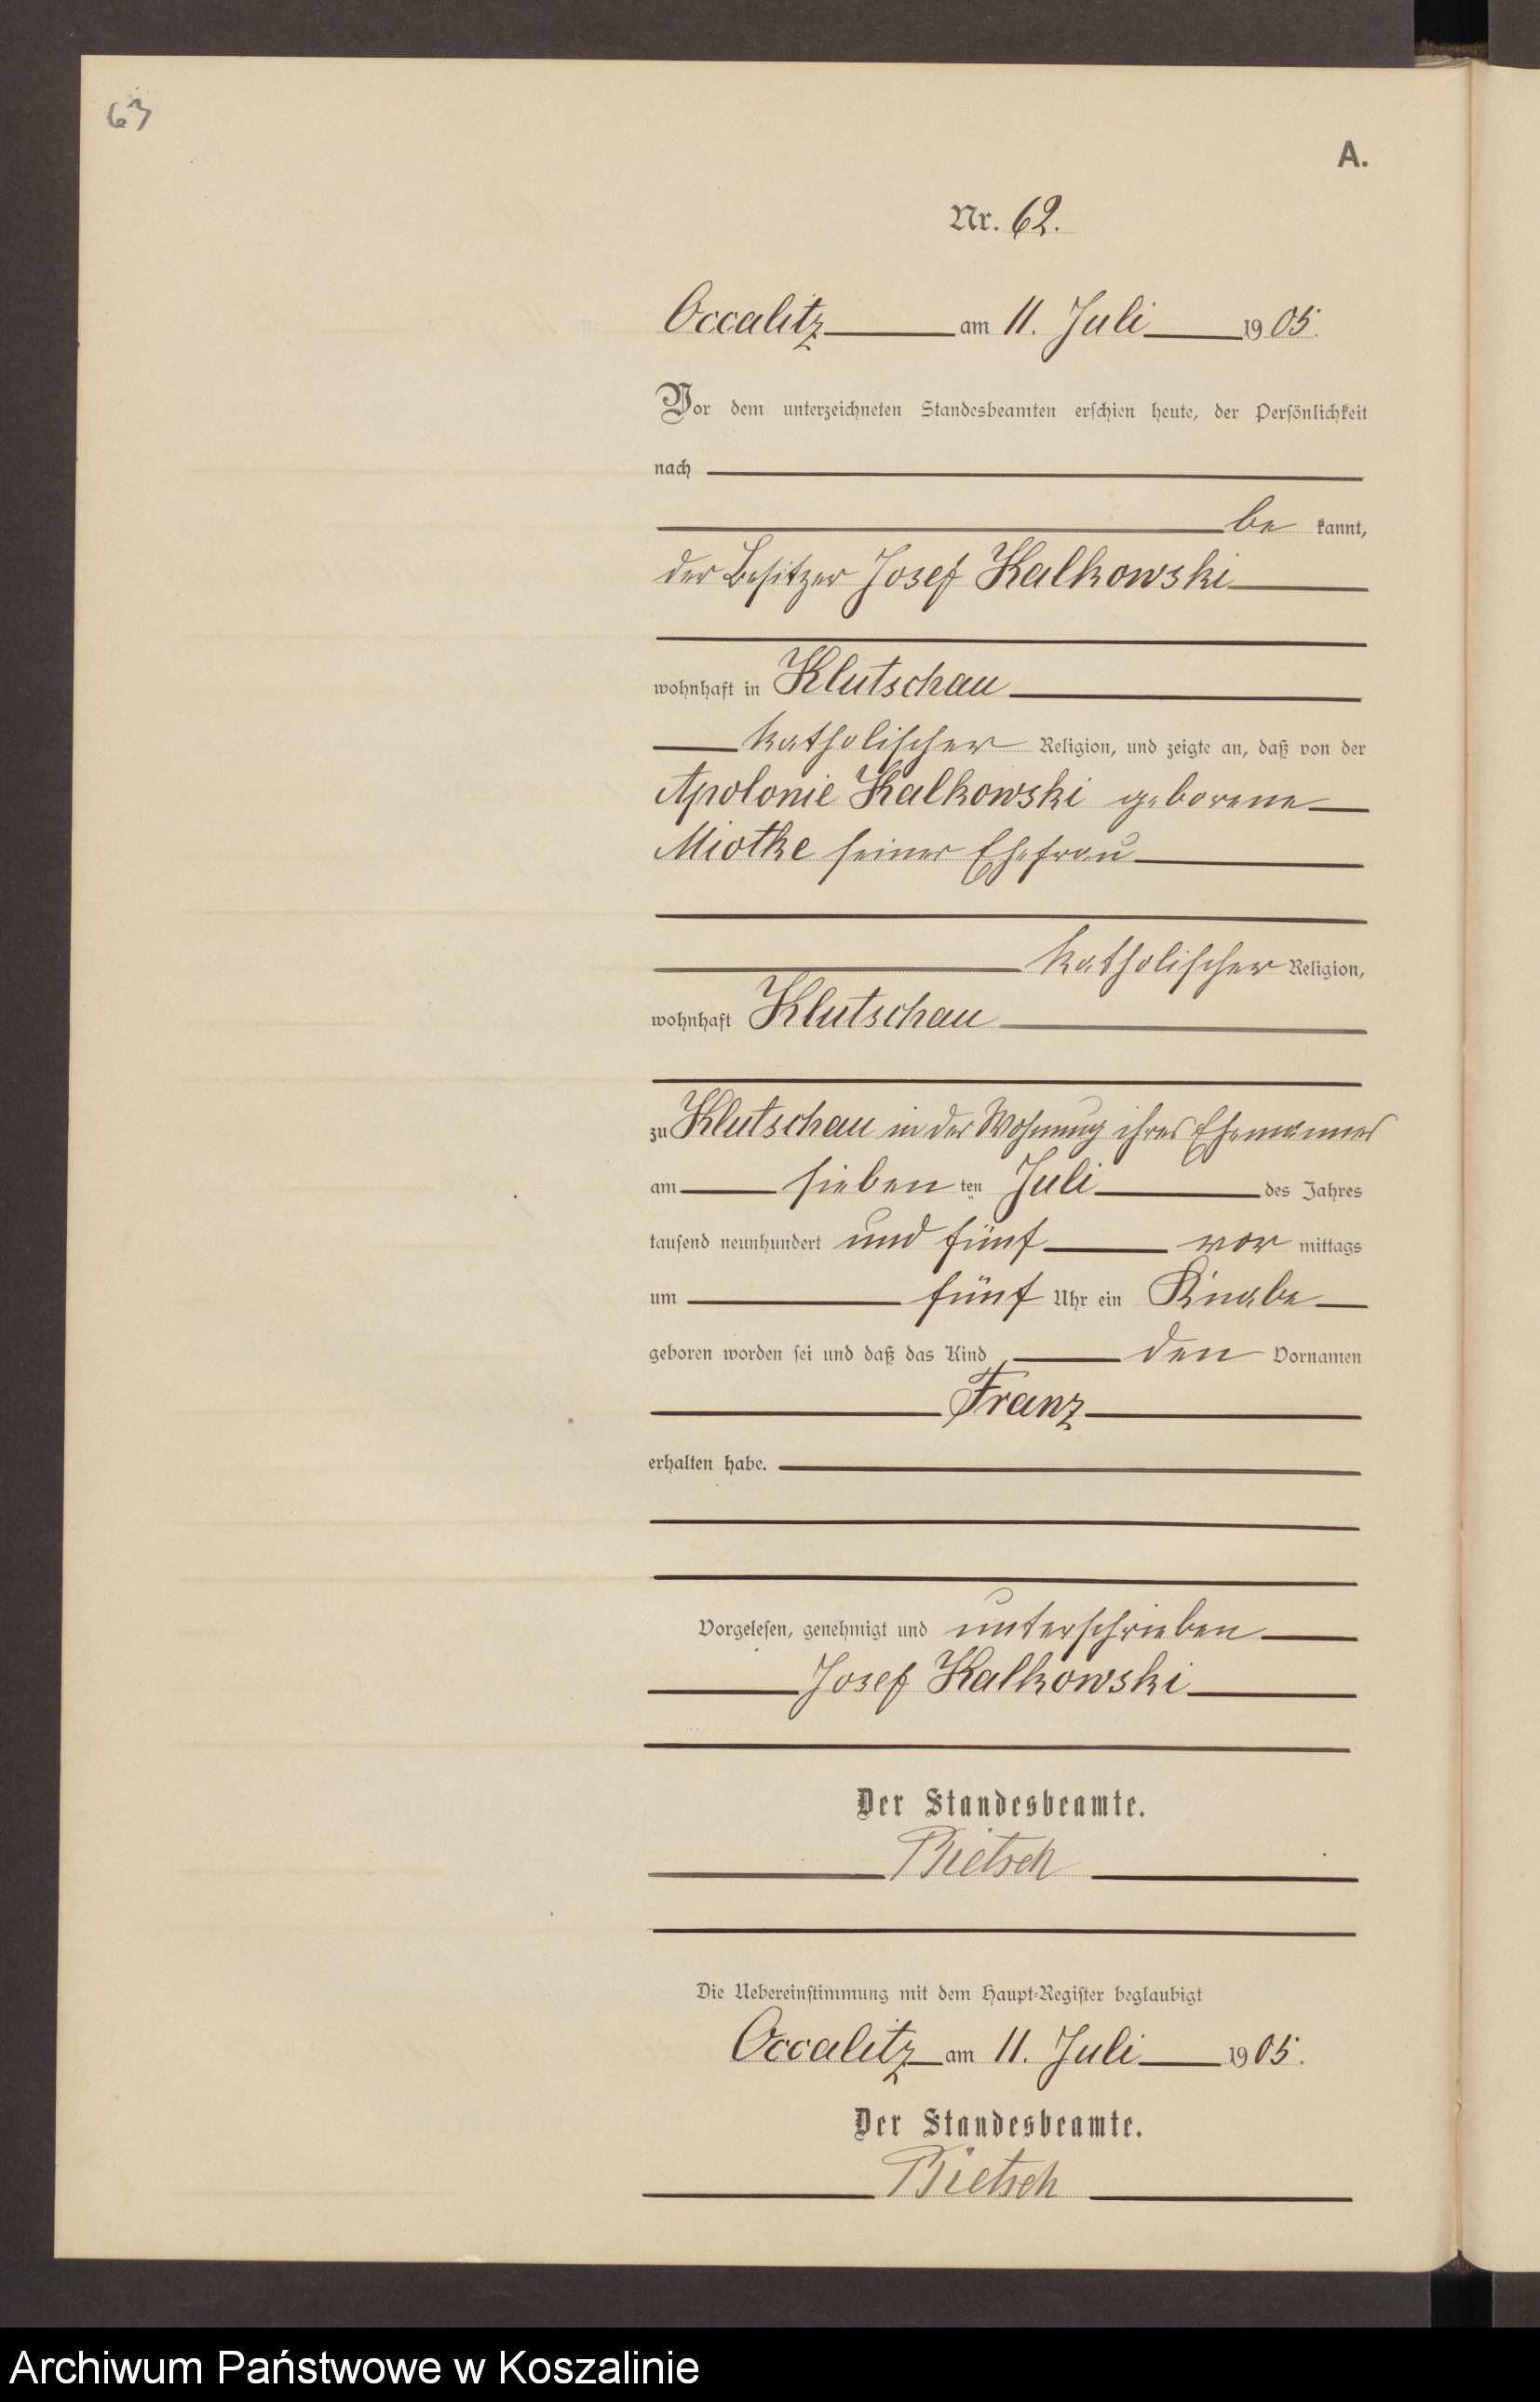 63
A.
Nr. 62.
Occalitz am 11. Juli 1905.
Vor dem unterzeichneten Standesbeamten erschien heute, der Persönlichkeit
nach
be kannt,
der Besitzer Josef Kalkowski
wohnhaft in Klutschau
katholischer Religion, und zeigte an, daß von der
Apolonie Kalkowski geborene
Miotke seiner Ehefrau
katholischer Religion,
wohnhaft Klutschau
zu Klutschau in der Wohnung ihres Ehemannes
am sieben ten Juli des Jahres
tausend neunhundert und fünf vor mittags
um fünf Uhr ein Knabe
geboren worden sei und daß das Kind den Vornamen
Franz
erhalten habe.
Vorgelesen, genehmigt und unterschrieben
Josef Kalkowski
Der Standesbeamte.
Die Uebereinstimmung mit dem Haupt-Register beglaubigt
Occalitz am 11. Juli 1905.
Der Standesbeamte.
Archiwum Państwowe w Koszalinie